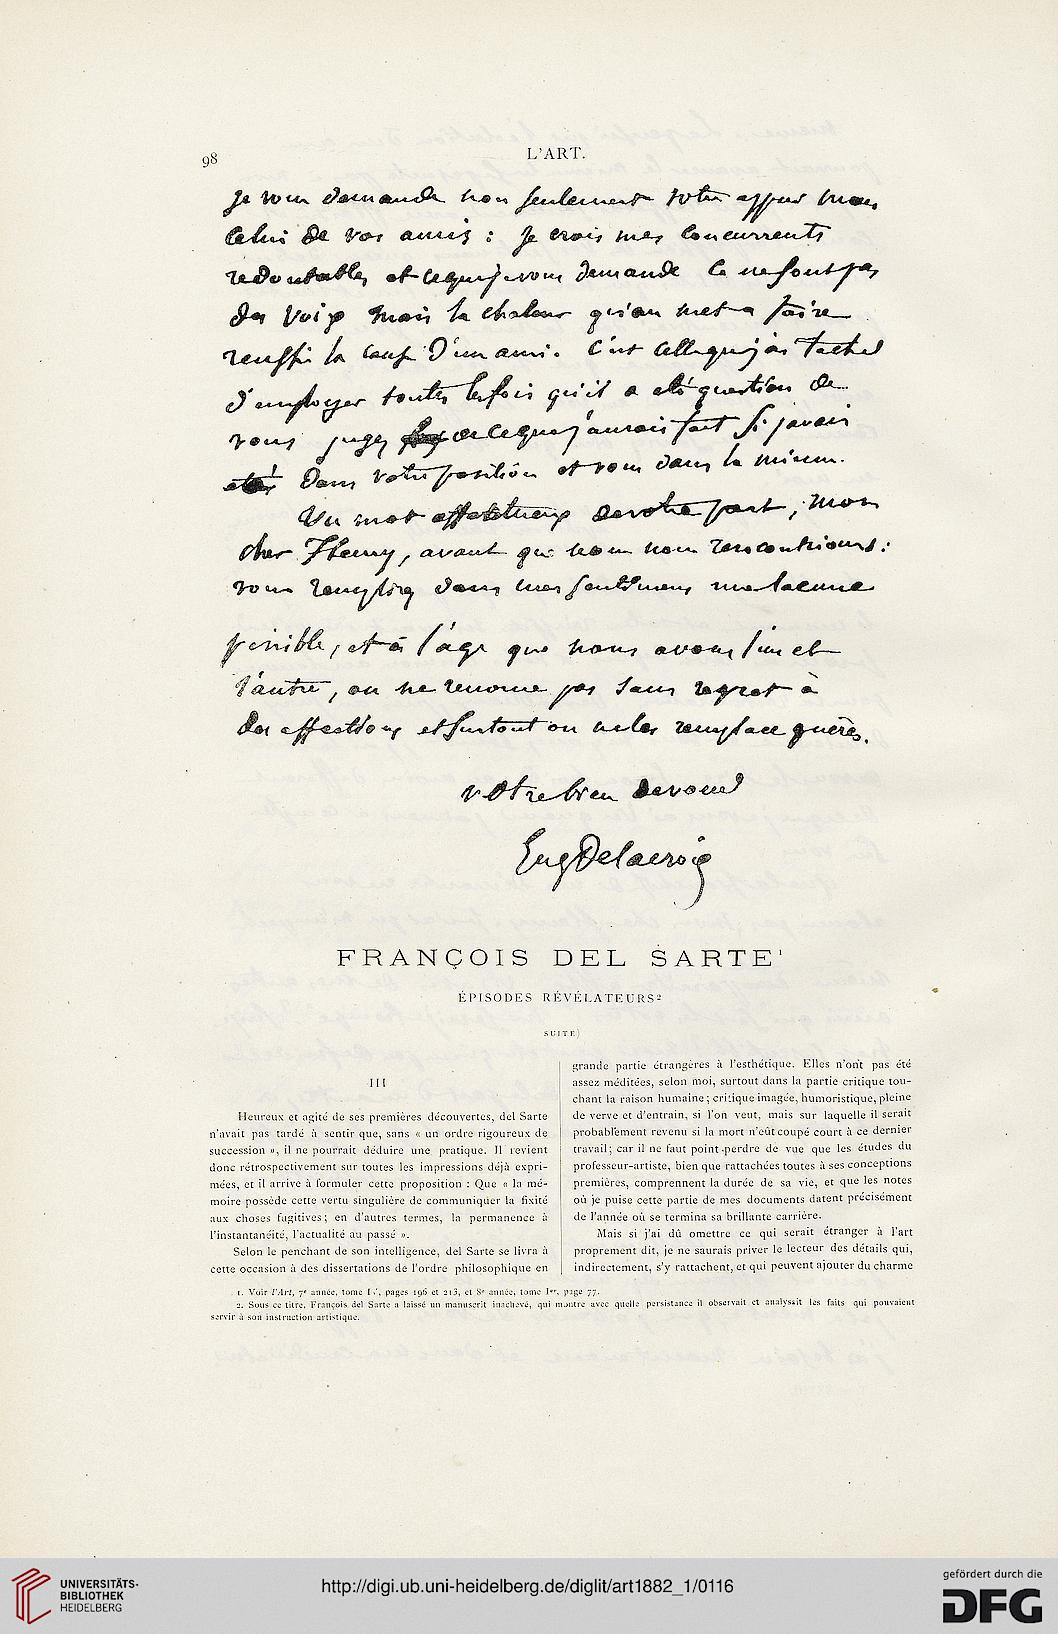 98
L'ART.
je vous demande non seulement votre appui mais
celui de vos amis : je crois mes concurrents
redoutables et ce que je vous demande ce ne sont pas
des voix mais la chaleur qu'on met a faire
reussir la cause d'un ami. C'est celle que j'ai taché
d'employer toutes les fois qu'il a eté question de
vous jugez de ce que j'aurais fait si j'avais
été dans votre position et vous dans la mienne.
Un mot affectueux de votre part, mon
cher Fleury, avant que nous nous rencontrions :
vous remplirez dans mes sentimens une lacune
penible, et à l'âge que nous avons l'un et
l'autre, on ne renonce pas sans regret à
des affections et surtout on ne les remplace guères.
votre bien devoué
Eug Delacroix
FRANÇOIS DEL SARTE¹
ÉPISODES RÉVÉLATEURS²
SUITE)
III
Heureux et agité de ses premières découvertes, del Sarte
n'avait pas tardé à sentir que, sans « un ordre rigoureux de
succession », il ne pourrait déduire une pratique. Il revient
donc rétrospectivement sur toutes les impressions déjà expri-
mées, et il arrive à formuler cette proposition : Que « la mé-
moire possède cette vertu singulière de communiquer la fixité
aux choses fugitives; en d'autres termes, la permanence à
l'instantanéité, l'actualité au passé ».
Selon le penchant de son intelligence, del Sarte se livra à
cette occasion à des dissertations de l'ordre philosophique en
grande partie étrangères à l'esthétique. Elles n'ont pas été
assez méditées, selon moi, surtout dans la partie critique tou-
chant la raison humaine; critique imagée, humoristique, pleine
de verve et d'entrain, si l'on veut, mais sur laquelle il serait
probablement revenu si la mort n'eût coupé court à ce dernier
travail; car il ne faut point perdre de vue que les études du
professeur-artiste, bien que rattachées toutes à ses conceptions
premières, comprennent la durée de sa vie, et que les notes
où je puise cette partie de mes documents datent précisément
de l'année où se termina sa brillante carrière.
Mais si j'ai dû omettre ce qui serait étranger à l'art
proprement dit, je ne saurais priver le lecteur des détails qui,
indirectement, s'y rattachent, et qui peuvent ajouter du charme
1. Voir l'Art, 7e année, tome Ier, pages 196 et 213, et 8e année, tome Ier, page 77.
2. Sous ce titre, François del Sarte a laissé un manuscrit inachevé, qui montre avec quelle persistance il observait et analysait les faits qui pouvaient
servir à son instruction artistique.
UNIVERSITÄTS-
BIBLIOTHEK
HEIDELBERG
http://digi.ub.uni-heidelberg.de/diglit/art1882_1/0116
gefördert durch die
DFG